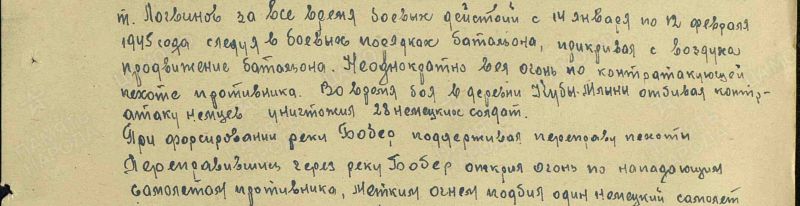 т. Логвинов за все время боевых действий с 14 января по 12 февраля
1945 года следуя в боевых порядках батальона, прикривая с воздуха
продвижение батальона. Неоднократно вел огонь по контратакующей
пехоте противника. Во время боя в деревни Кубы-Млыны отбивая контр-
атаку немцев уничтожил 28 немецких солдат.
При форсировании реки Бобер поддерживая переправу пехоты
Переправившись через реку Бобер открил огонь по нападающим
самолетам противника, метким огнем подбил один немецкий самолет